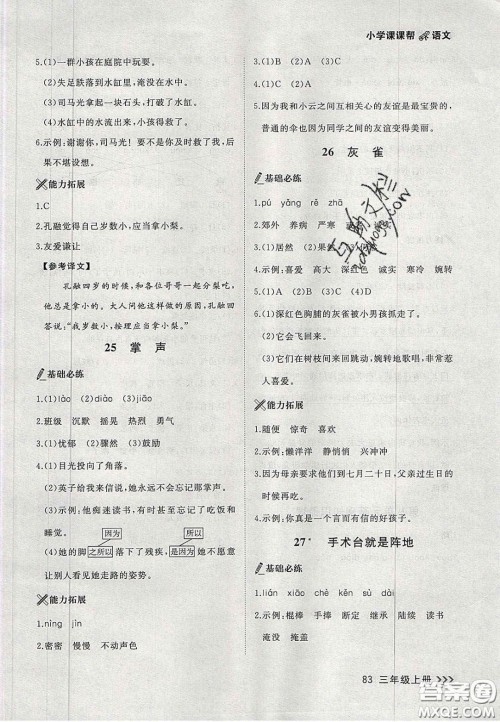 小学课课帮 语文
5.(1)一群小孩在庭院中玩耍。
(2)失足跌落到水缸里,水缸里有水。
(3)司马光拿起一块石头,打破了水缸。
(4)水缸里的水流出来,小孩得救了。
6.示例:谢谢你,司马光!要不是你及时救了我,后
果不堪设想。
能力拓展
1.C
2.孔融觉得自己岁数小,应当拿小梨。
3.友爱谦让
【参考译文】
孔融四岁的时候,和各位哥哥一起分梨吃,
他总是拿小的。大人问他这样做的原因,孔融
回答说:“我岁数小,按理应当拿小梨。”
25 掌 声
基础必练
1.(1)jiào (2)diào (3)liǎo
2.班级 沉默 摇晃 热烈 勇气
3.(1)忧郁 (2)骤然 (3)鼓励
4.(1)目光投向了角落。
(2)英子给我来信说,她永远不会忘记掌声。
(3)示例:他痴迷读书,读得忘记了吃饭和
睡觉。
(4)她的脚之所以因为落下了残疾,是因为之所以不愿意
让别人看见她走路的姿势。
能力拓展
1.níng jìn
2.密密 慢慢 不动声色
3.(1)B (2)A
4.(1)B (2)A (3)C
5.因为我和小云之间互相关心的友谊是最宝贵的,
普通的伞也因为同学之间的友谊变得美丽。
26 灰 雀
基础必练
1.pú yǎng rě zhā
2.郊外 养病 严寒
3.(1)居然 (2)果然
4.示例:喜爱 高大 深红色 诚实 寒冷 婉转
5.(1)A (2)B (3)C (4)D
6.(1)深红色胸脯的灰雀被小男孩抓走了。
(2)它会飞回来。
(3)它们在树枝间来回跳动,婉转地歌唱,非常惹
人喜爱。
能力拓展
1.随便 惊奇 喜欢
2.示例:懒洋洋 静悄悄 兴冲冲
3.因为母亲要求他们到七月二十日,才可以吃
樱桃。
4.示例:你真是一个言而有信的好孩子。
27* 手术台就是阵地
基础必练
1.lián xiāo chè dēn kāi xù
2.示例:棍棒 手撑 断定 继承 陆续 读书
淹没 掩盖
83 三年级上册